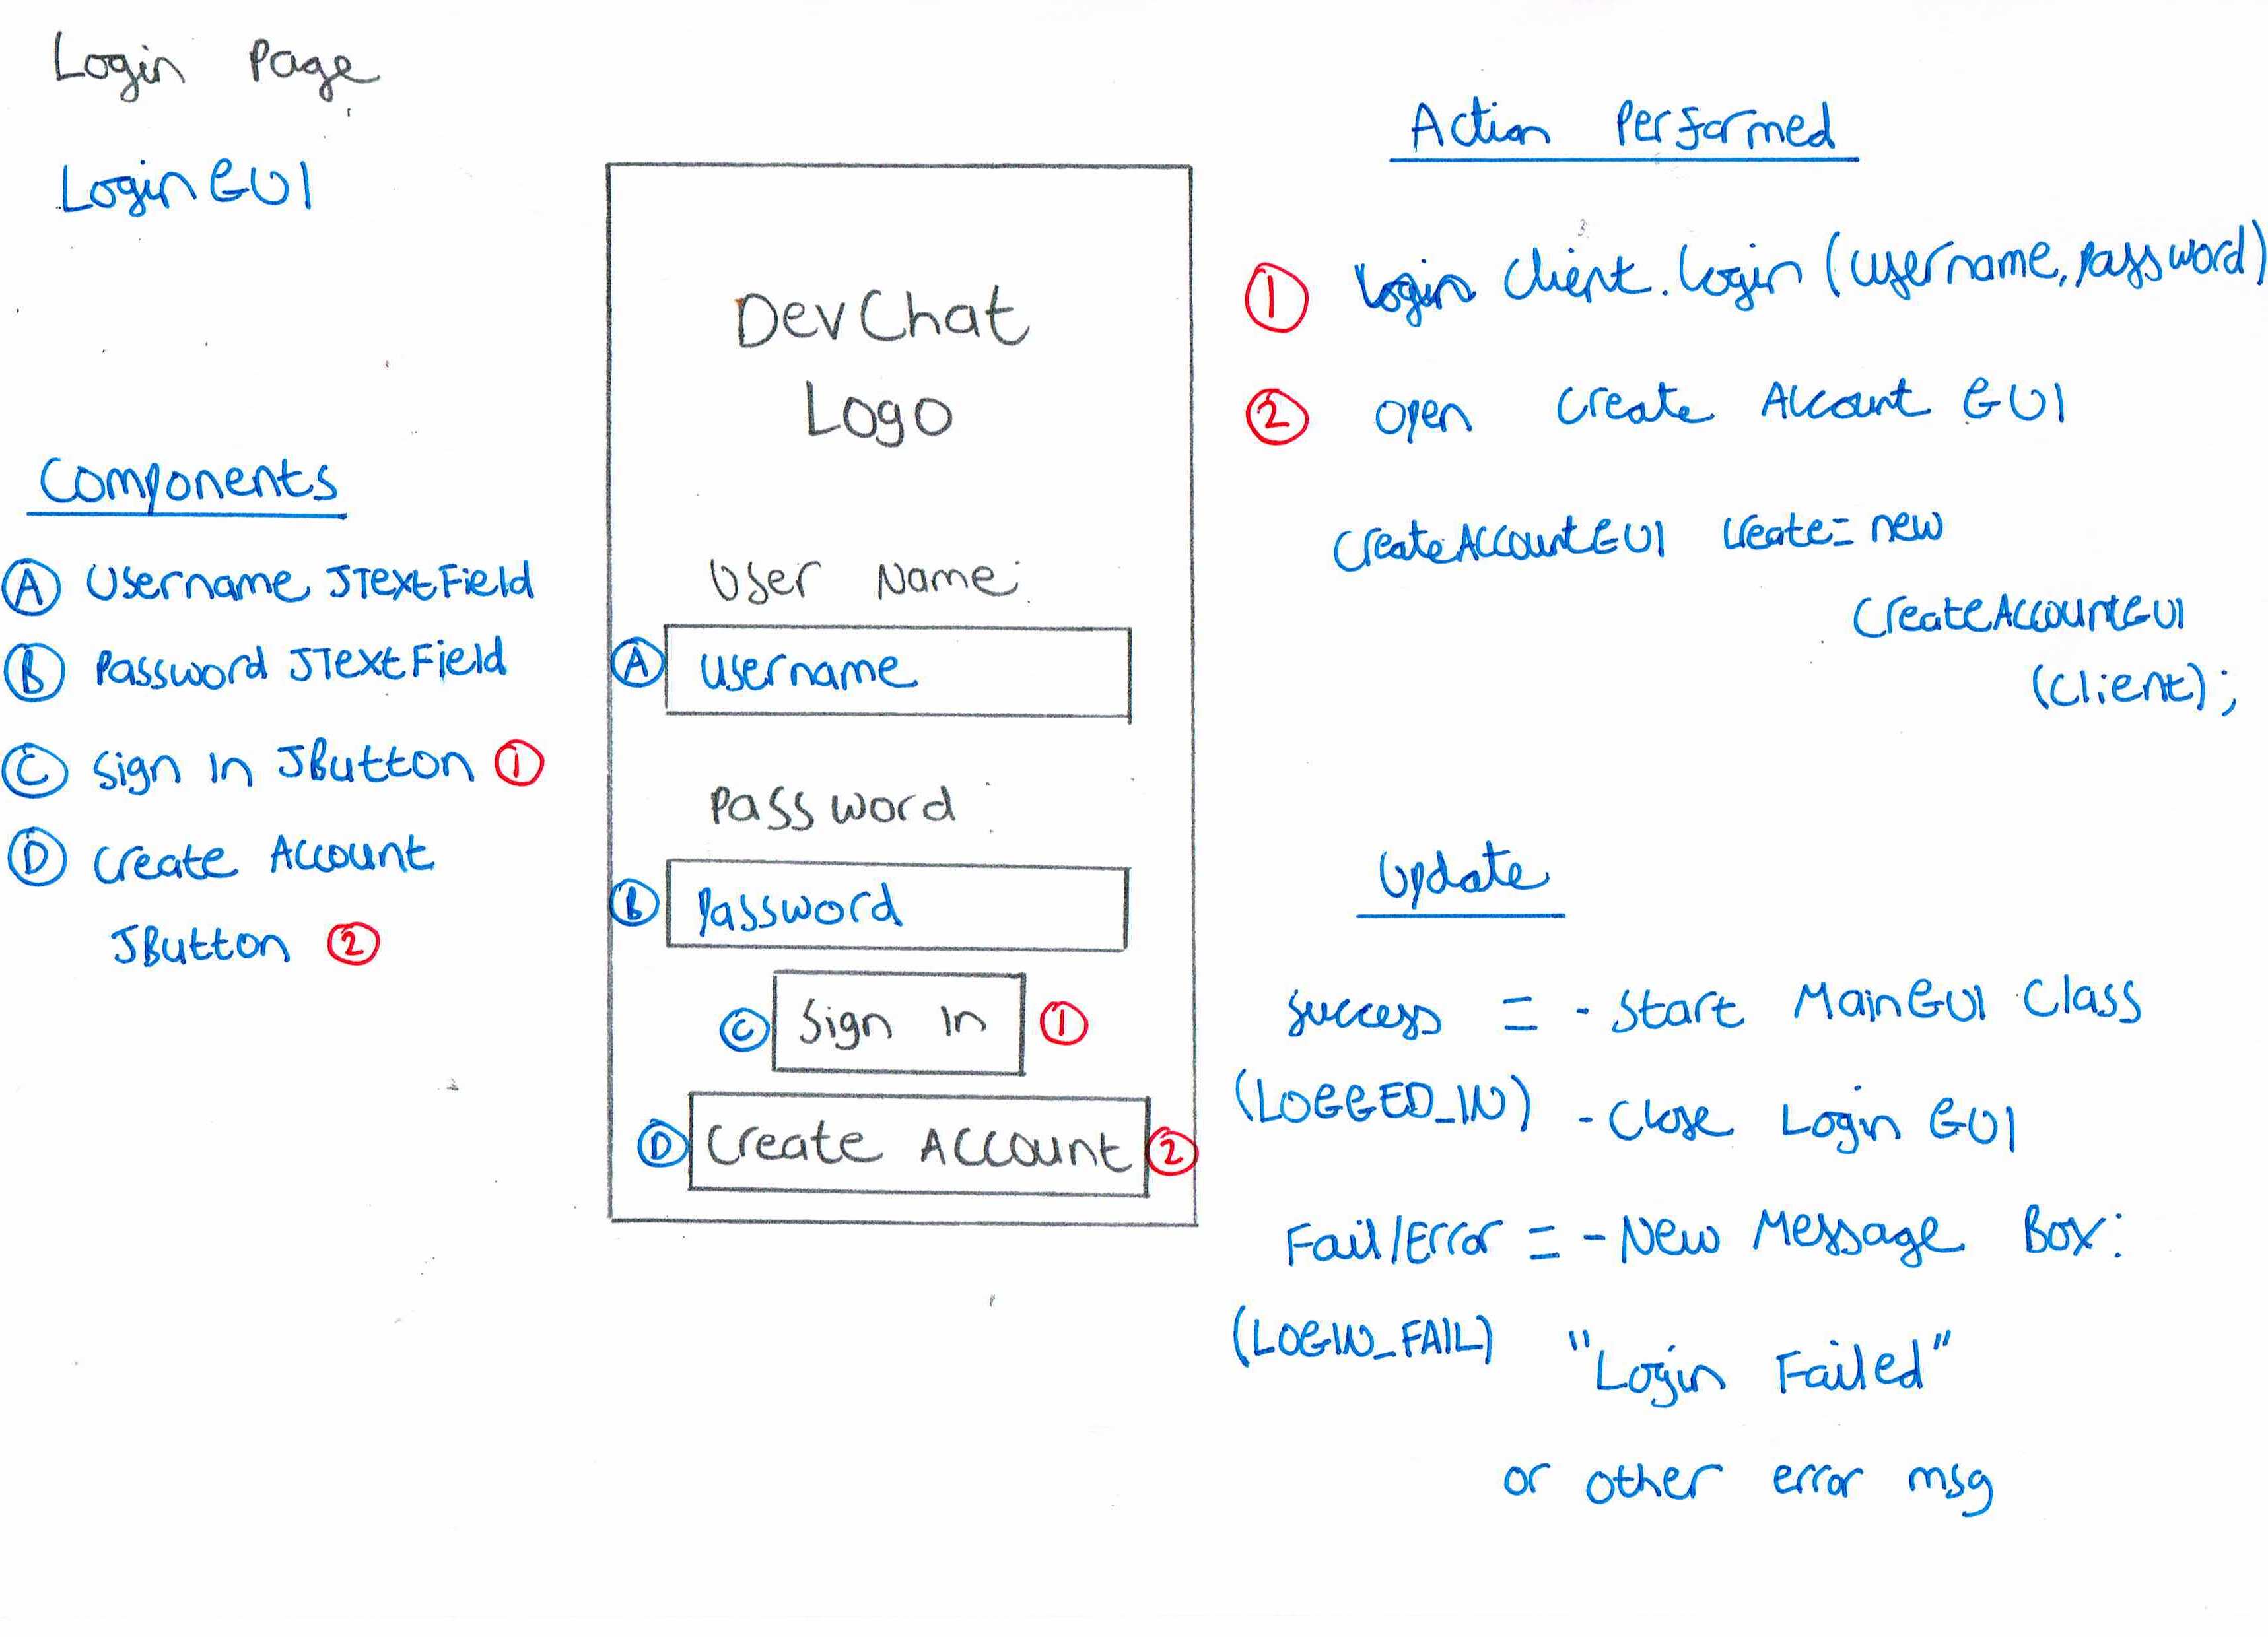 Login Page
LoginGUI
Components
A Username JTextField
B Password JTextField
C Sign In JButton 1
D Create Account
JButton 2
DevChat
Logo
User Name:
A username
Password:
B password
C Sign In 1
D Create Account 2
Action Performed
1 Login Client.login(username,password)
2 Open Create Account GUI
CreateAccountGUI create= new
CreateAccountGUI
(client);
Update
Success = - Start MainGUI Class
(LOGGED_IN) - Close Login GUI
Fail/Error = - New Message Box:
(LOGIN_FAIL) "Login Failed"
or other error msg